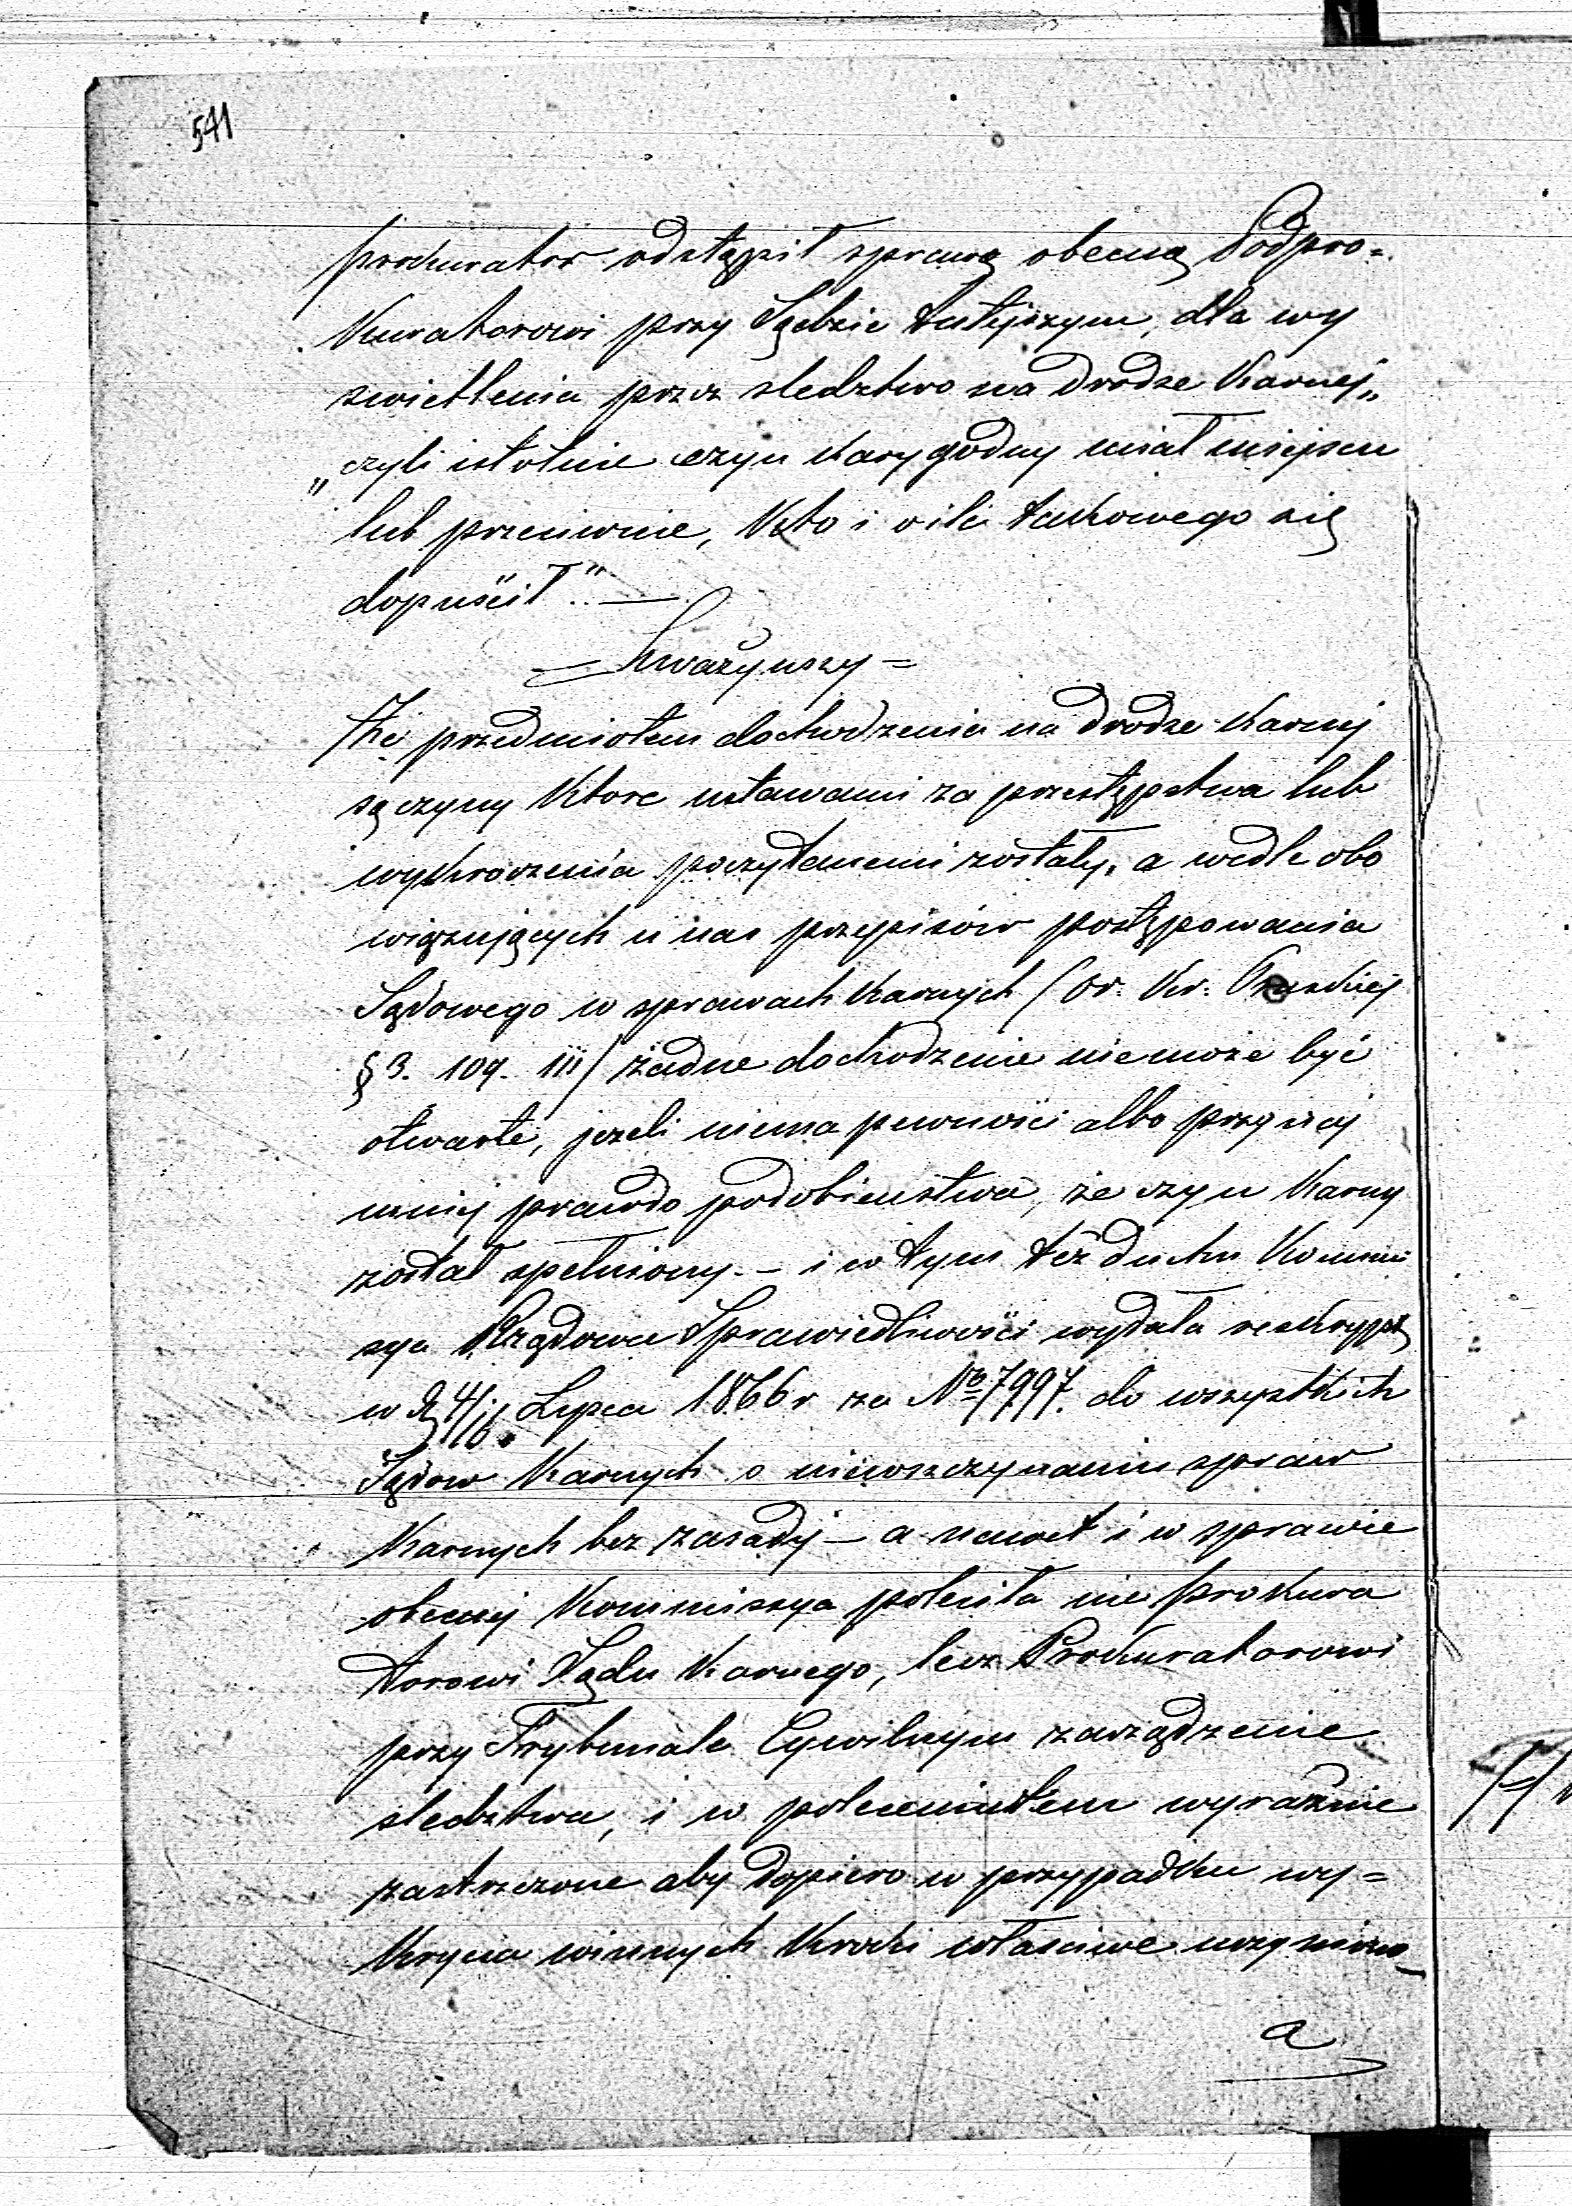 541
prokurator odstąpił sprawę obecną Podpro=
kuratorowi przy Sądzie tutejszym, dla wy
swietlenia przez sledztwo na drodze karnej,,
„czyli istotnie czyn karygodny miał miejsce
lub przeciwnie, Kto i o ile takowego się
dopuścił". —
= Zważywszy =
Że przedmiotem dochodzenia na drodze karnej
są czyny które ustawami za przestępstwa lub
wykroczenia poczytanemi zostały, a wedle obo
wiązujących u nas przepisów postępowania
Sądowego w sprawach karnych (Or. Kr. Pruskiej
§ 3. 109. 111) żadne dochodzenie niemoże być
otwarte, jeżeli niema pewności albo przynaj
mniej prawdopodobieństwa, że czyn karny
został spełniony. – i w tym też duchu Kommi
sya Rządowa Sprawiedliwości wydała reskrypt
w d. 4/16 Lipca 1866 r za No 7997. do wszystkich
Sądow Karnych o niewszczynaniu spraw
Karnych bez zasady – a nawet i w sprawie
obecnej Kommissya poleciła nie prokura
torowi Sądu Karnego, lecz Prokuratorowi
przy Trybunale Cywilnym zarządzenie
sledztwa, i w poleceniu tem wyraźnie
zastrzeżone aby dopiero w przypadku wy=
krycia winnych kroki właściwe uczyniono
a